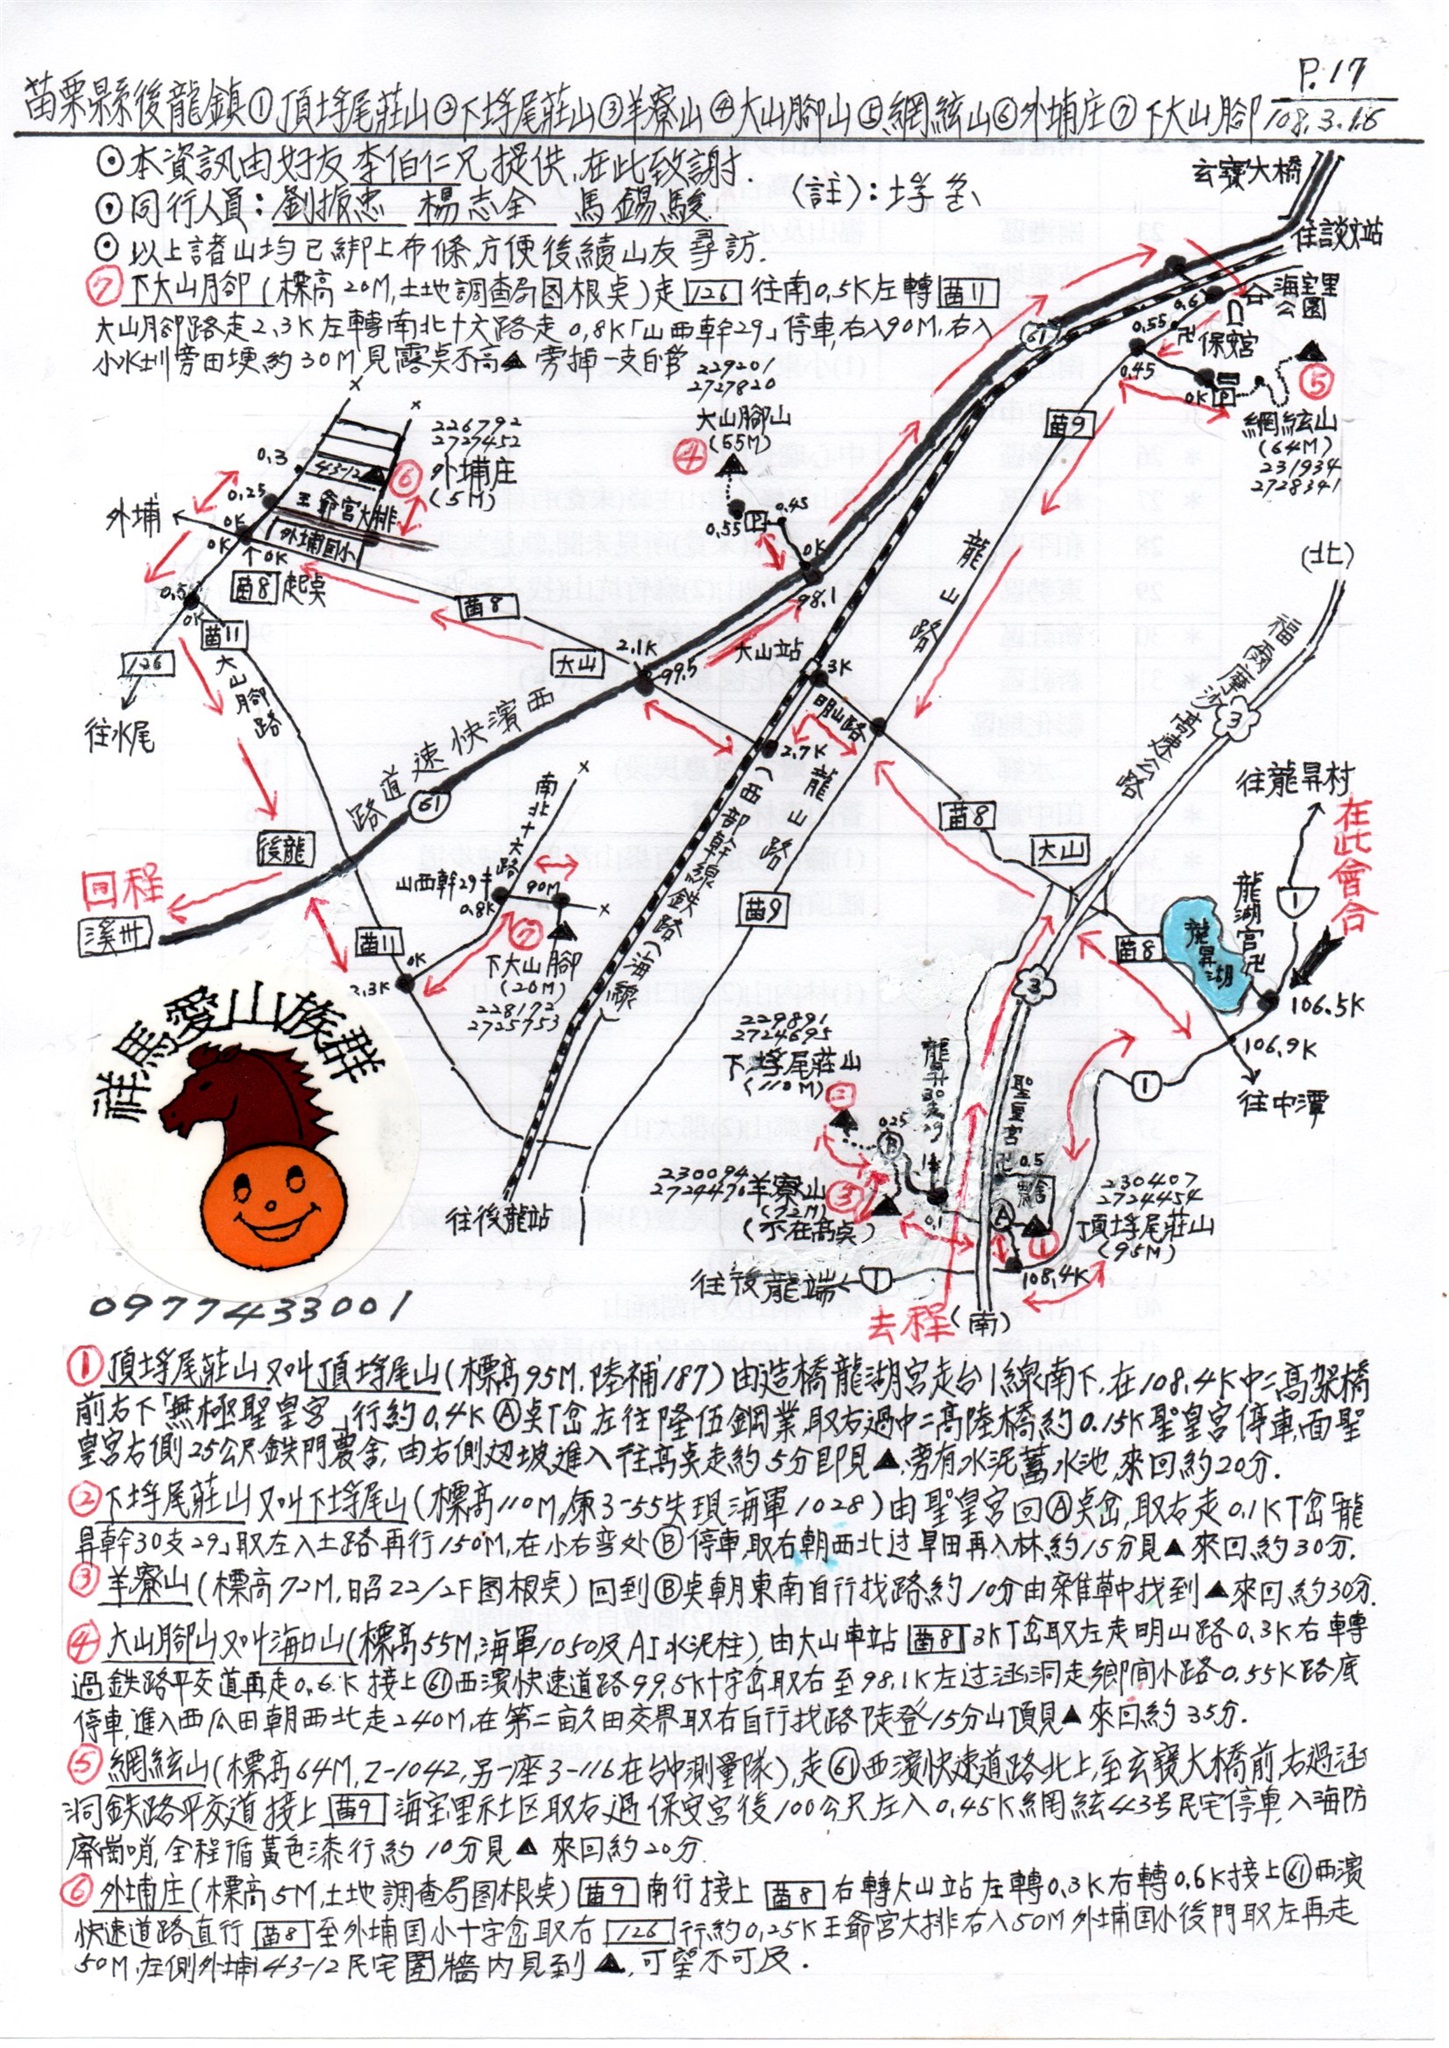 P.17
苗栗縣後龍鎮①頂埓尾莊山②下埓尾莊山③羊寮山④大山腳山⑤網絃山⑥外埔庄⑦下大山腳 108.3.16
⊙本資訊由好友李伯仁兄提供,在此致謝.
⊙同行人員:劉振忠 楊志全 馬錫駿
(註):埓
⊙以上諸山均已綁上布條,方便後續山友尋訪.
⑦下大山腳(標高20M,土地調查局図根奌)走126往南0.5K左轉苗11
大山腳路走2.3K左轉南北十六路走0.8K「山西幹29」停車,右入90M,右入
小水圳旁田埂約30M見露奌不高▲旁掉一支白管
玄寶大橋
往談文站
海宝里
公園
61
0.6
0.55
卍保安宮
0.45
0K
P
⑤
網絃山
(64M)
231934
2728341
苗9
229201
2727820
大山腳山
(55M)
④
0.45
0.55
P
0K
98.1
龍山路
226792
2727452
外埔庄
(5M)
⑥
43-12
0.3
王爺宮大排
0.25
外埔
0K
0K
↑0K
外埔囯小
苗8起奌
0.5
0K
苗11
126
往水尾
大山腳路
苗8
大山
2.1K
99.5
大山站
3K
明山路
2.7K
西濱快速道路
61
龍山路
(西部幹線鉄路(海線)
苗9
(北)
福爾摩沙高速公路
3
往龍昇村
在此會合
苗8
大山
1
龍湖宮卍
龍昇湖
苗8
106.5K
106.9K
往中潭
1
後龍
回程
溪州
苗11
0K
2.3K
南北十六路
山西幹29
0.8K
90M
⑦
下大山腳
(20M)
228172
2725753
3
229891
2724695
下埓尾莊山
(110M)
②
0.25
B
龍昇幹30支29
聖皇宮
卍
0.5
農舍
A
①
0.1
230094
2724476
羊寮山
(72M)
(不在高奌)
③
230407
2724454
頂埓尾莊山
(95M)
108.4K
往後龍端
1
去程
(南)
往後龍站
祥馬愛山族群
0977433001
①頂埓尾莊山又叫頂埓尾山(標高95M,陸補187)由造橋龍湖宮走台1線南下,在108.4K中二高架橋
前右下「無極聖皇宮」行約0.4KⒶ奌T岔,左往隆伍鋼業,取右過中二高陸橋約0.15K聖皇宮停車,面聖
皇宮右側25公尺鉄門農舍,由右側边坡進入往高奌走約5分即見▲,旁有水泥蓄水池,來回約20分.
②下埓尾莊山又叫下埓尾山(標高110M,煉3-55失現海軍1028)由聖皇宮回Ⓐ奌岔,取右走0.1KT岔「龍
昇幹30支29」取左入土路再行150M,在小右弯处Ⓑ停車,取右朝西北过旱田再入林約15分見▲來回約30分.
③羊寮山(標高72M,昭22/2F図根奌)回到Ⓑ奌朝東南自行找路約10分由雜草中找到▲來回約30分.
④大山腳山又叫海口山(標高55M,海軍1050及AJ水泥柱),由大山車站苗8 3KT岔取左走明山路0.3K右轉
過鉄路平交道再走0.6K接上61西濱快速道路99.5K十字岔取右至98.1K左过涵洞走鄉间小路0.55K路底
停車,進入西瓜田朝西北走240M,在第二亩久田交界取右自行找路陡登15分山頂見▲來回約35分.
⑤網絃山(標高64M,Z-1042,另一座3-116在台中測量隊),走61西濱快速道路北上,至玄寶大橋前,右過涵
洞鉄路平交道接上苗9海宝里社区取右過保安宮後100公尺左入0.45K網絃443号民宅停車,入海防
廢崗哨,全程循黃色漆行約10分見▲來回約20分.
⑥外埔庄(標高5M,土地調查局図根奌)苗9南行接上苗8右轉大山站左轉0.3K右轉0.6K接上61西濱
快速道路直行苗8至外埔囯小十字岔取右126行約0.25K王爺宮大排右入50M外埔囯小後門取左再走
50M,左側外埔43-12民宅圍牆內見到▲,可望不可及.